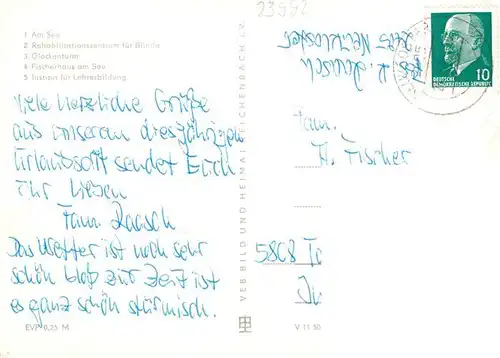 23992
1 Am See
2 Rehabilitationszentrum für Blinde
3 Glockenturm
4 Fischerhaus am See
5 Institut für Lehrerbildung
Viele herzliche Grüße
aus unserem diesjährigen
Urlaubsort sendet Euch
Ihr Lieben
Fam. Raasch
Das Wetter ist noch sehr
schön bloß zur Zeit ist
es ganz schön stürmisch.
EVP 0,25 M
VEB BILD UND HEIMAT REICHENBACH I. V.
V 11 50
Raasch
Neukloster
DEUTSCHE
DEMOKRATISCHE REPUBLIK
10
Fam.
H. Fischer
5808 Ta